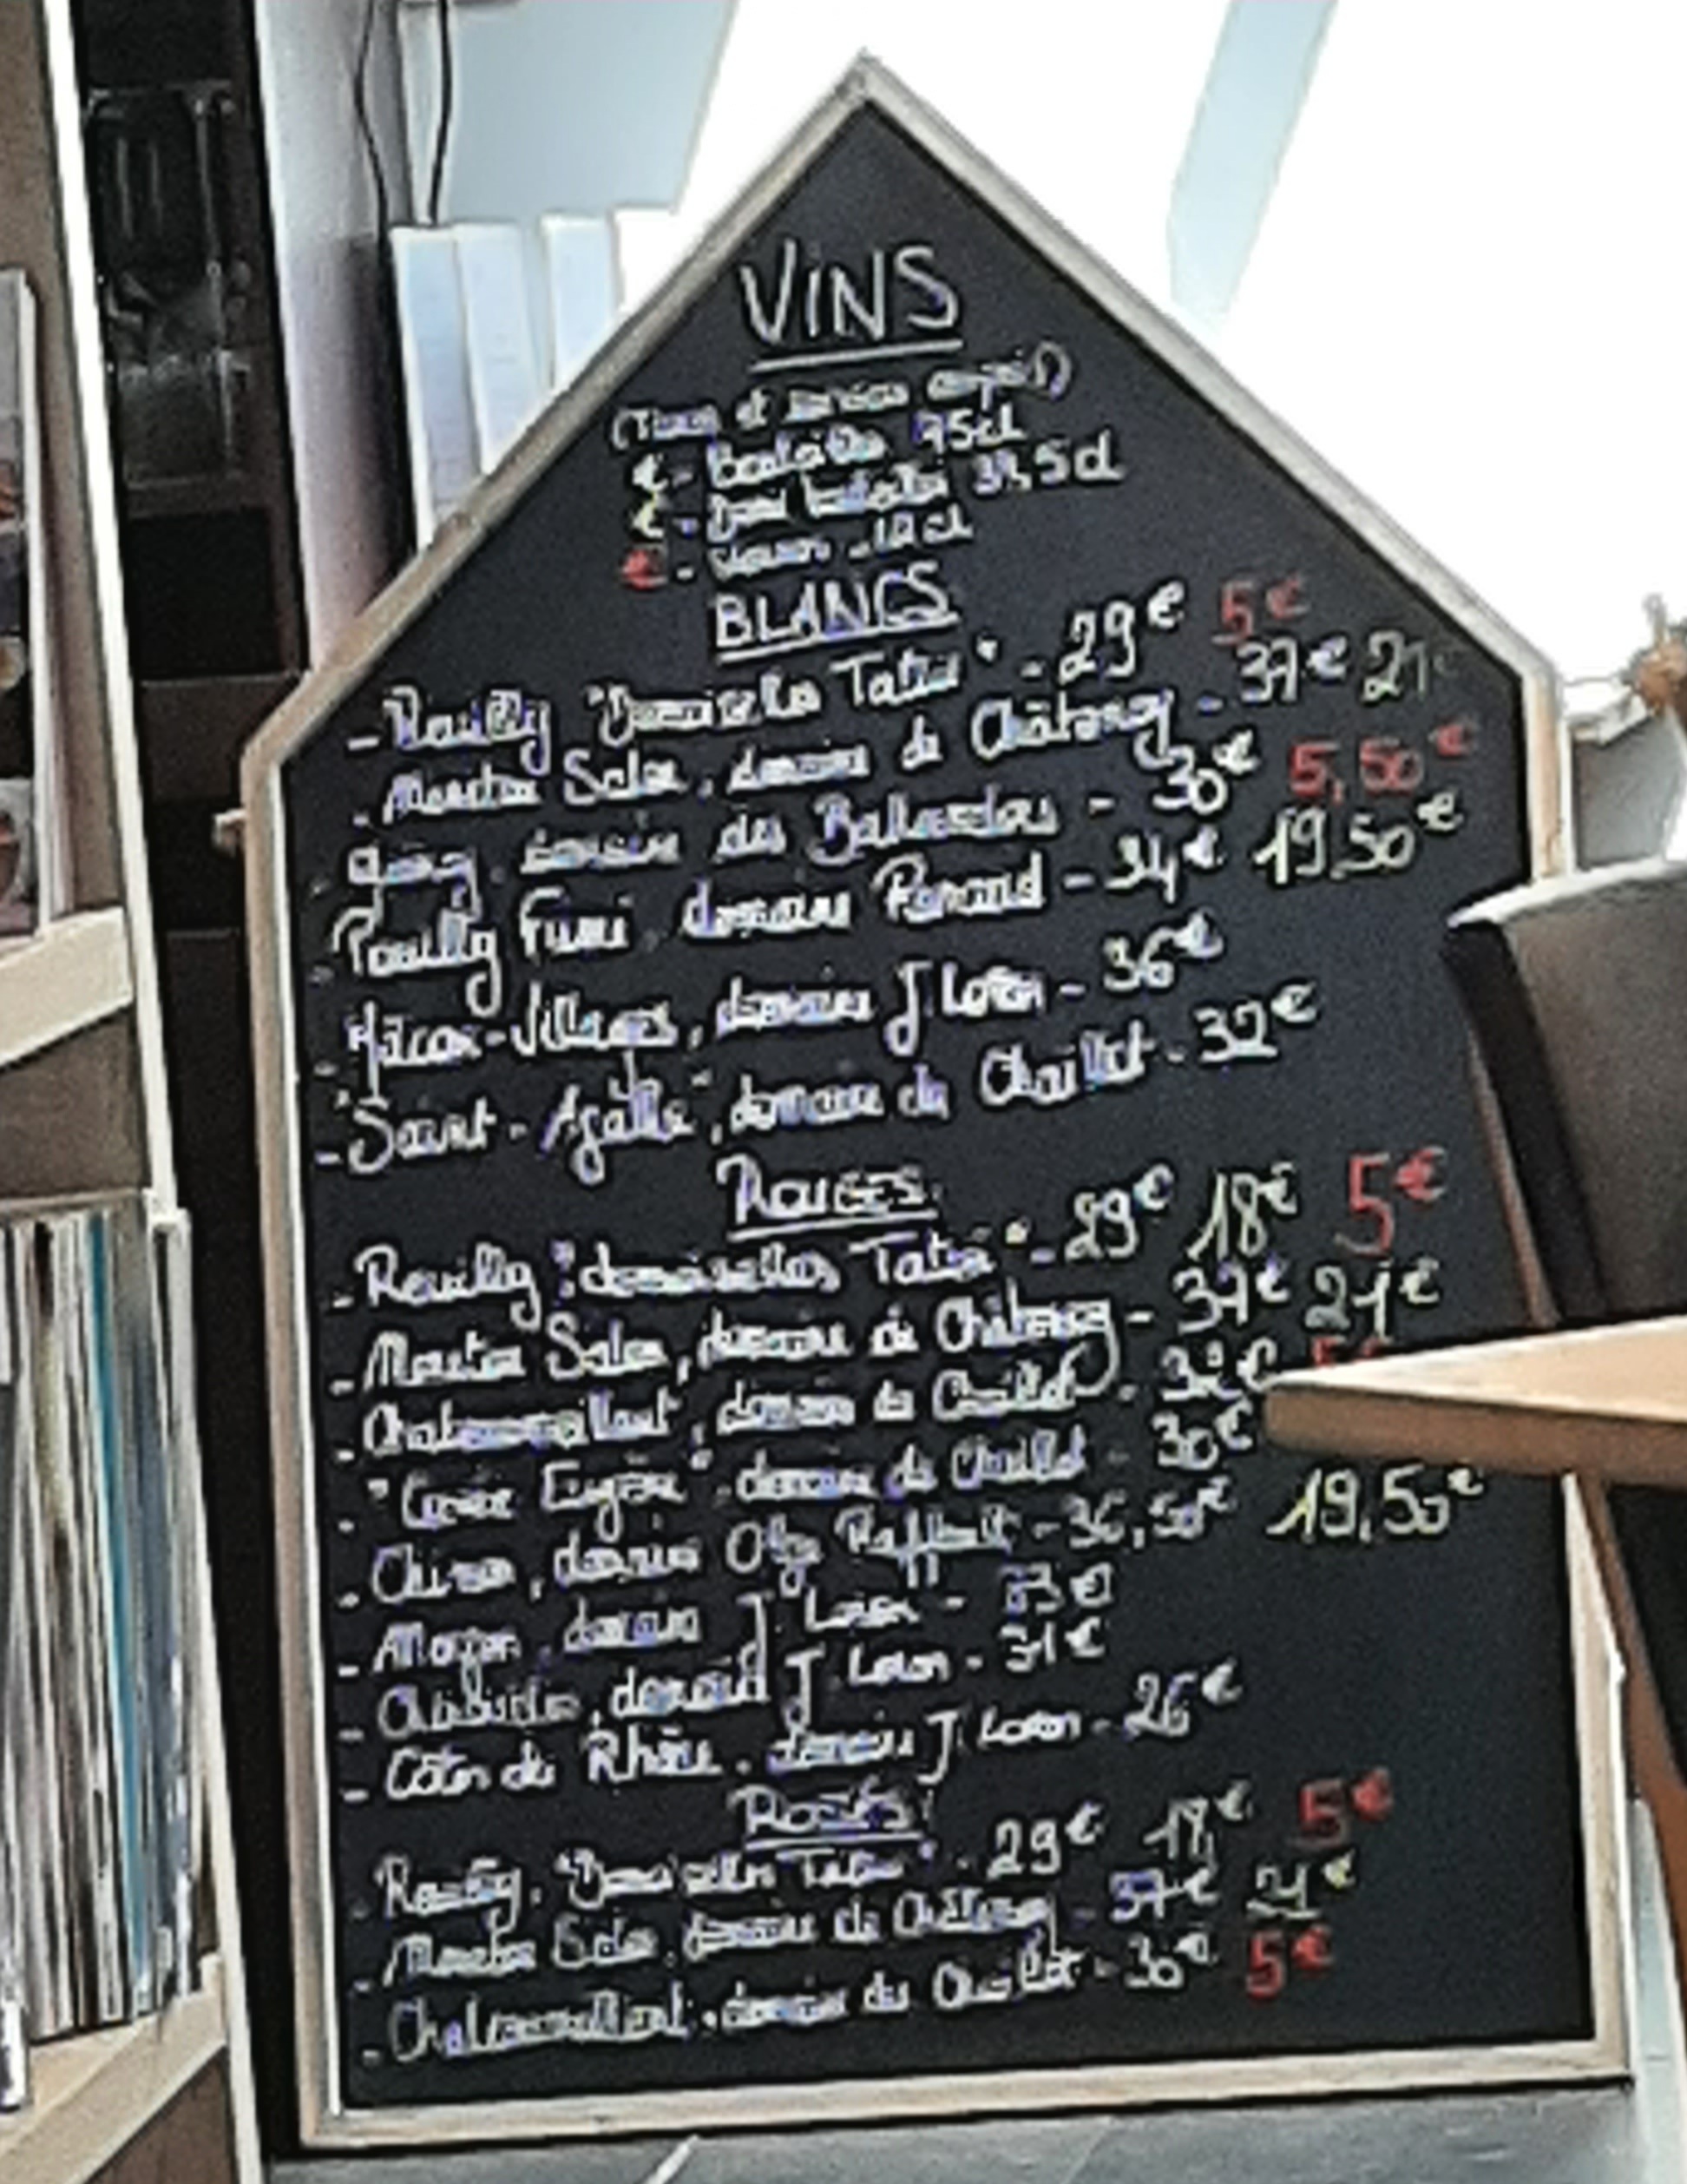 VINS
(Taxes et service compris)
€ - Bouteilles 75cl
€ - Demi bouteilles 37,5cl
€ - Verres - 12cl
BLANCS
- Reuilly "Demoiselles Tatin" - 29€ 5€
- Menetou Salon, domaine de Châtenoy - 37€ 21
- Quincy, domaine des Ballandors - 30€ 5,50€
- Pouilly Fumé, domaine Renaud - 34€ 19,50€
- Mâcon-Villages, domaine J Loron - 36€
- "Saint-Agathe", domaine du Chaillot - 32€
ROUGES
- Reuilly "demoiselles Tatin" - 29€ 18€ 5€
- Menetou Salon, domaine de Châtenoy - 37€ 21€
- Chateaumeillant, domaine du Chaillot - 32€
- "Eugène" domaine du Chaillot - 30€
- Chinon, domaine Olga Raffault - 36,50€ 19,50€
- domaine J Loron - 33€
- domaine J Loron - 31€
- Côtes du Rhône, domaine J Loron - 26€
ROSÉS
- Reuilly, "Demoiselles Tatin" - 29€ 18€ 5€
- Menetou Salon, domaine de Châtenoy - 37€ 21€
- Chateaumeillant, domaine du Chaillot - 30€ 5€